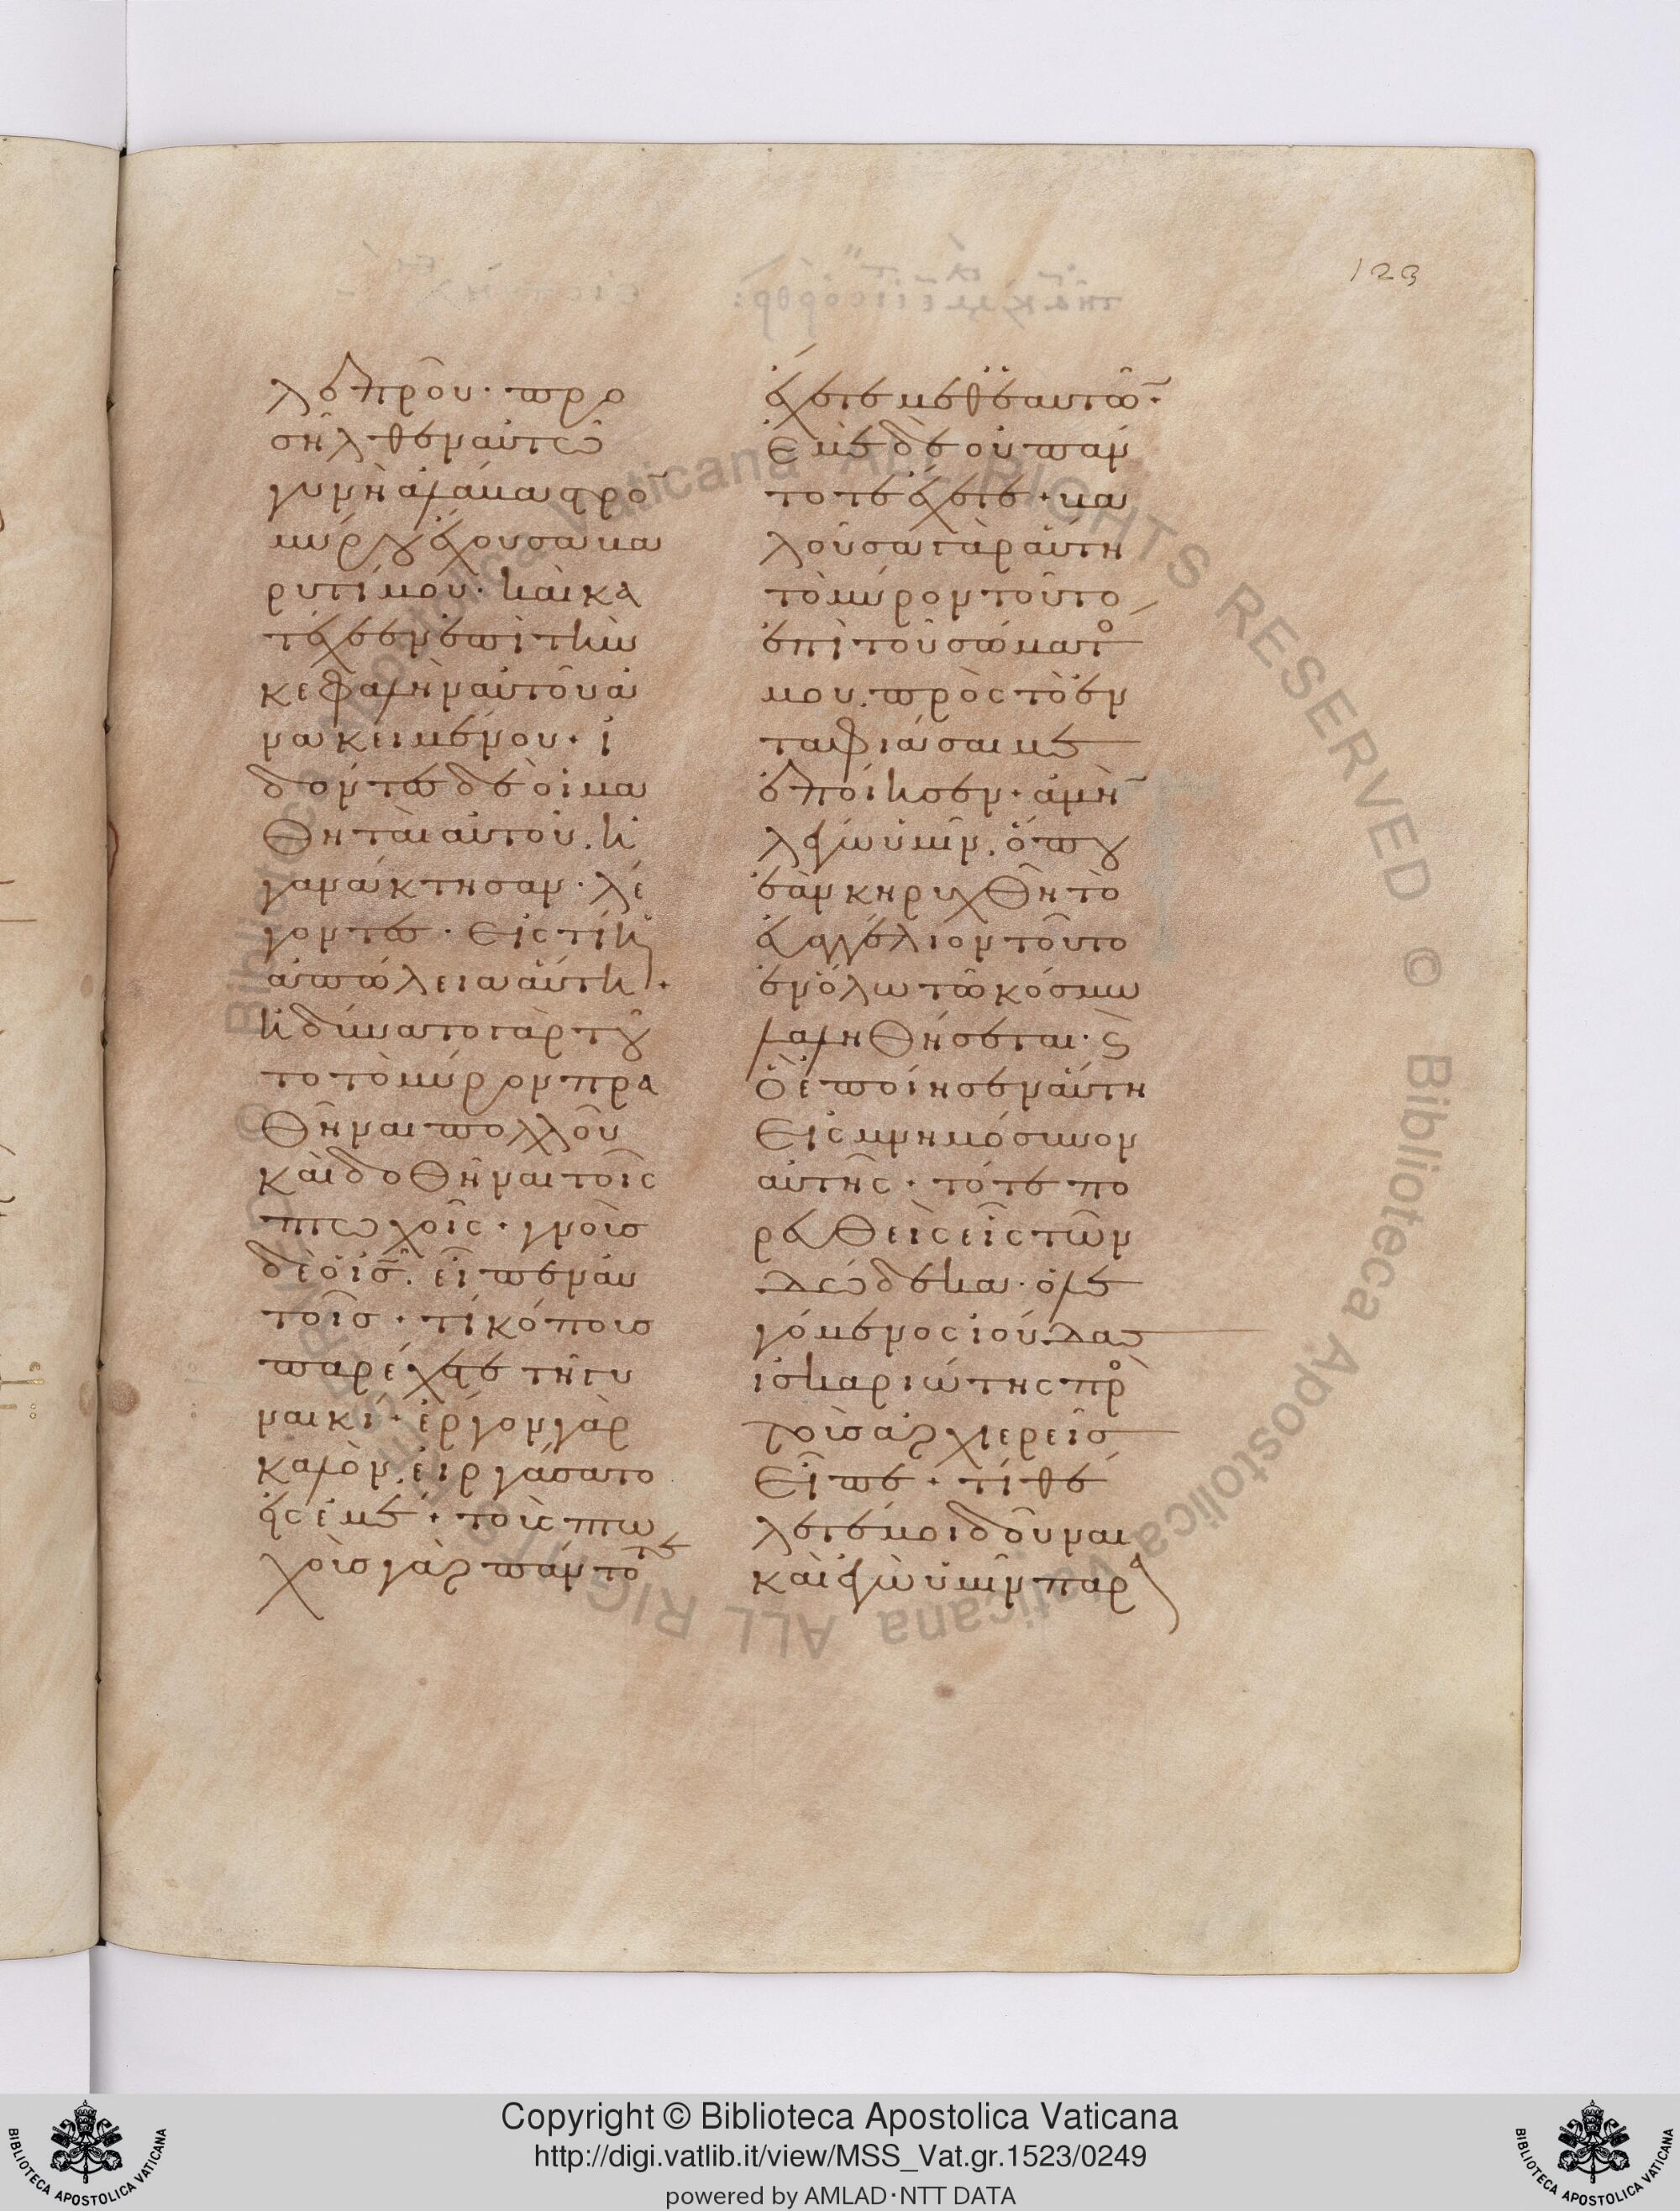 123
λεπροῦ· προ
σῆλθεν αὐτῶ
γυνὴ ἀλάβαστρο̅
μύρου ἔχουσα βα
ρυτίμου· καὶ κα
τέχεεν ἐπὶ τὴν
κεφαλὴν αὐτοῦ ἀ
νακειμένου· ἰ
δόντες δὲ οἱ μα
θηταὶ αὐτοῦ. ἠ
γανάκτησαν· λέ
γοντες· εἰς τί ἡ
ἀπώλεια αὕτη·
ἠδύνατο γὰρ τοῦ
το τὸ μύρον πρα
θῆναι πολλοῦ
καὶ δοθῆναι τοῖς
πτωχοῖς· γνοὺς
δὲ ὁ ι̅ς̅. εἶπεν αὐ
τοῖς· τί κόπους
παρέχετε τῆ γυ
ναικί· ἔργον γὰρ
καλὸν εἰργάσατο
εἰς ἐμέ· τοὺς πτω
χοὺς γὰρ πάντοτε
ἔχετε μεθ' ἑαυτῶ̅·
ἐμὲ δὲ οὐ πάν
τοτε ἔχετε· βα
λοῦσα γὰρ αὕτη
τὸ μύρον τοῦτο
ἐπὶ τοῦ σώματος
μου. πρὸς τὸ ἐν
ταφιάσαι με
ἐποίησεν· ἀμὴ̅
λέγω ὑμῖν. ὅπου
ἐὰν κηρυχθῆ τὸ
εὐαγγέλιον τοῦτο
ἐν ὅλω τῶ κόσμω
λαληθήσεται· ϛ
ὃ ἐποίησεν αὕτη
εἰς μνημόσυνον
αὐτῆς· τότε πο
ρευθεὶς εἷς τῶν
δώδεκα· ὁ λε
γόμενος ἰούδας
ἰσκαριώτης πρὸς
τοὺς ἀρχιερεῖς
εἶπε· τί θέ
λετέ μοι δοῦναι
καὶ ἐγὼ ὑμῖν παρα
Copyright © Biblioteca Apostolica Vaticana
http://digi.vatlib.it/view/MSS_Vat.gr.1523/0249
powered by AMLAD·NTT DATA